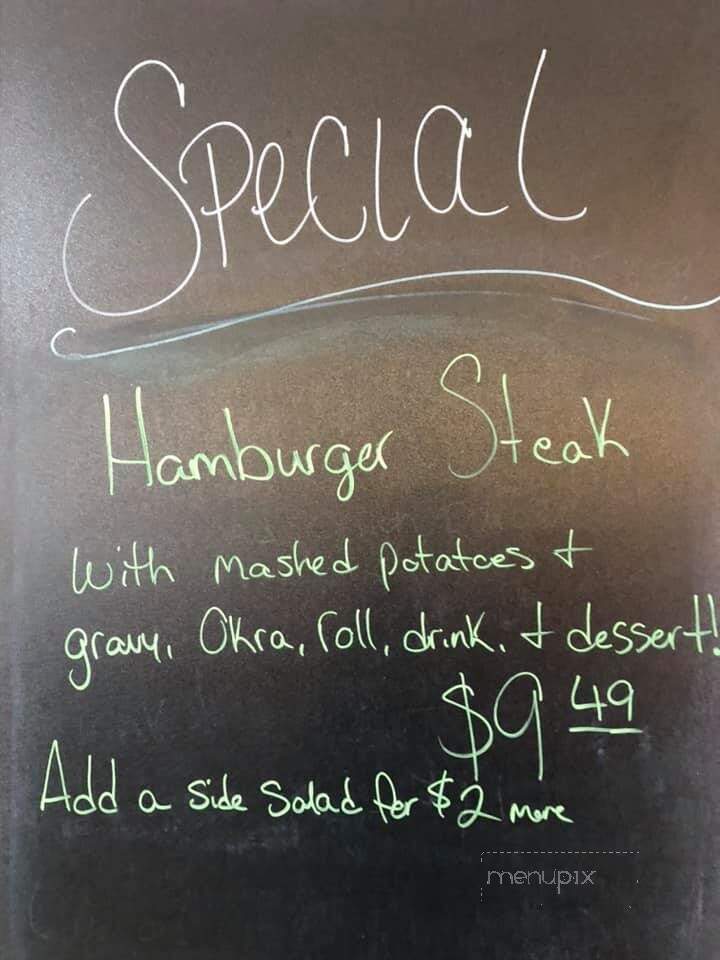 Special
Hamburger Steak
with mashed potatoes +
gravy, Okra, roll, drink, + dessert!
$9 49
Add a side salad for $2 more
menupix